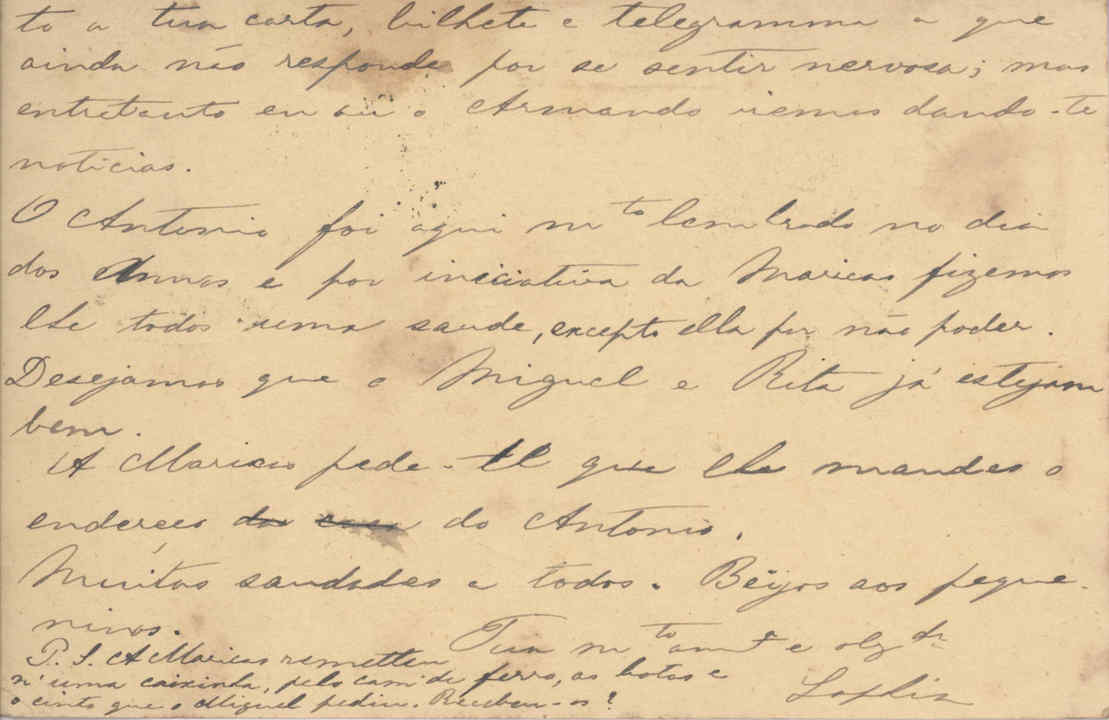 to a tua carta, bilhete e telegramma a que
ainda não responde por se sentir nervosa; mas
entretanto eu ou o Armando iremos dando-te
noticias.
O Antonio foi aqui mto lembrado no dia
dos Annos e por iniciativa da Maricas fizemos
lhe todos uma saude, excepto ella por não poder.
Desejamos que o Miguel e Rita já estejam
bem.
A Maricas pede-te que lhe mandes o
endereço da casa do Antonio.
Muitas saudades a todos. Beijos aos peque-
ninos.
Tua mto amª e obgda
Sophia
P. S. A Maricas remetteu
n'uma caixinha, pelo camº de ferro, as botas e
o cinto que o Miguel pediu. Recebeu-os?